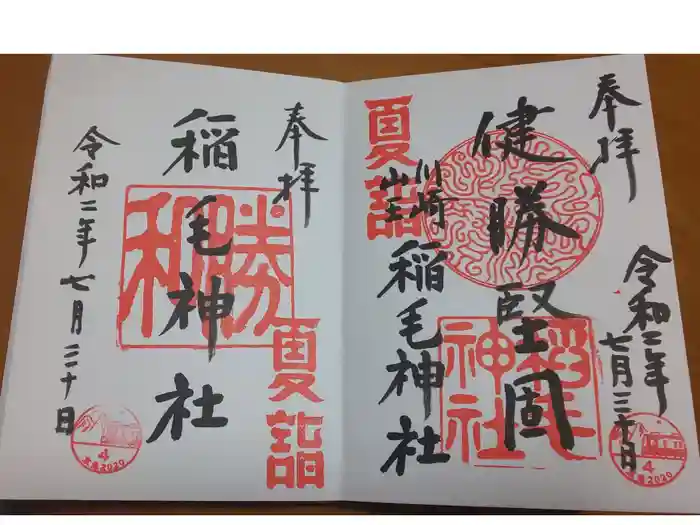 奉拝
健勝堅固
川崎
山王
稲毛神社
令和二年
七月三十日
夏詣
稲毛
神社
4
2020
奉拝
稲毛神社
令和二年
七月三十日
勝
和
夏詣
4
2020